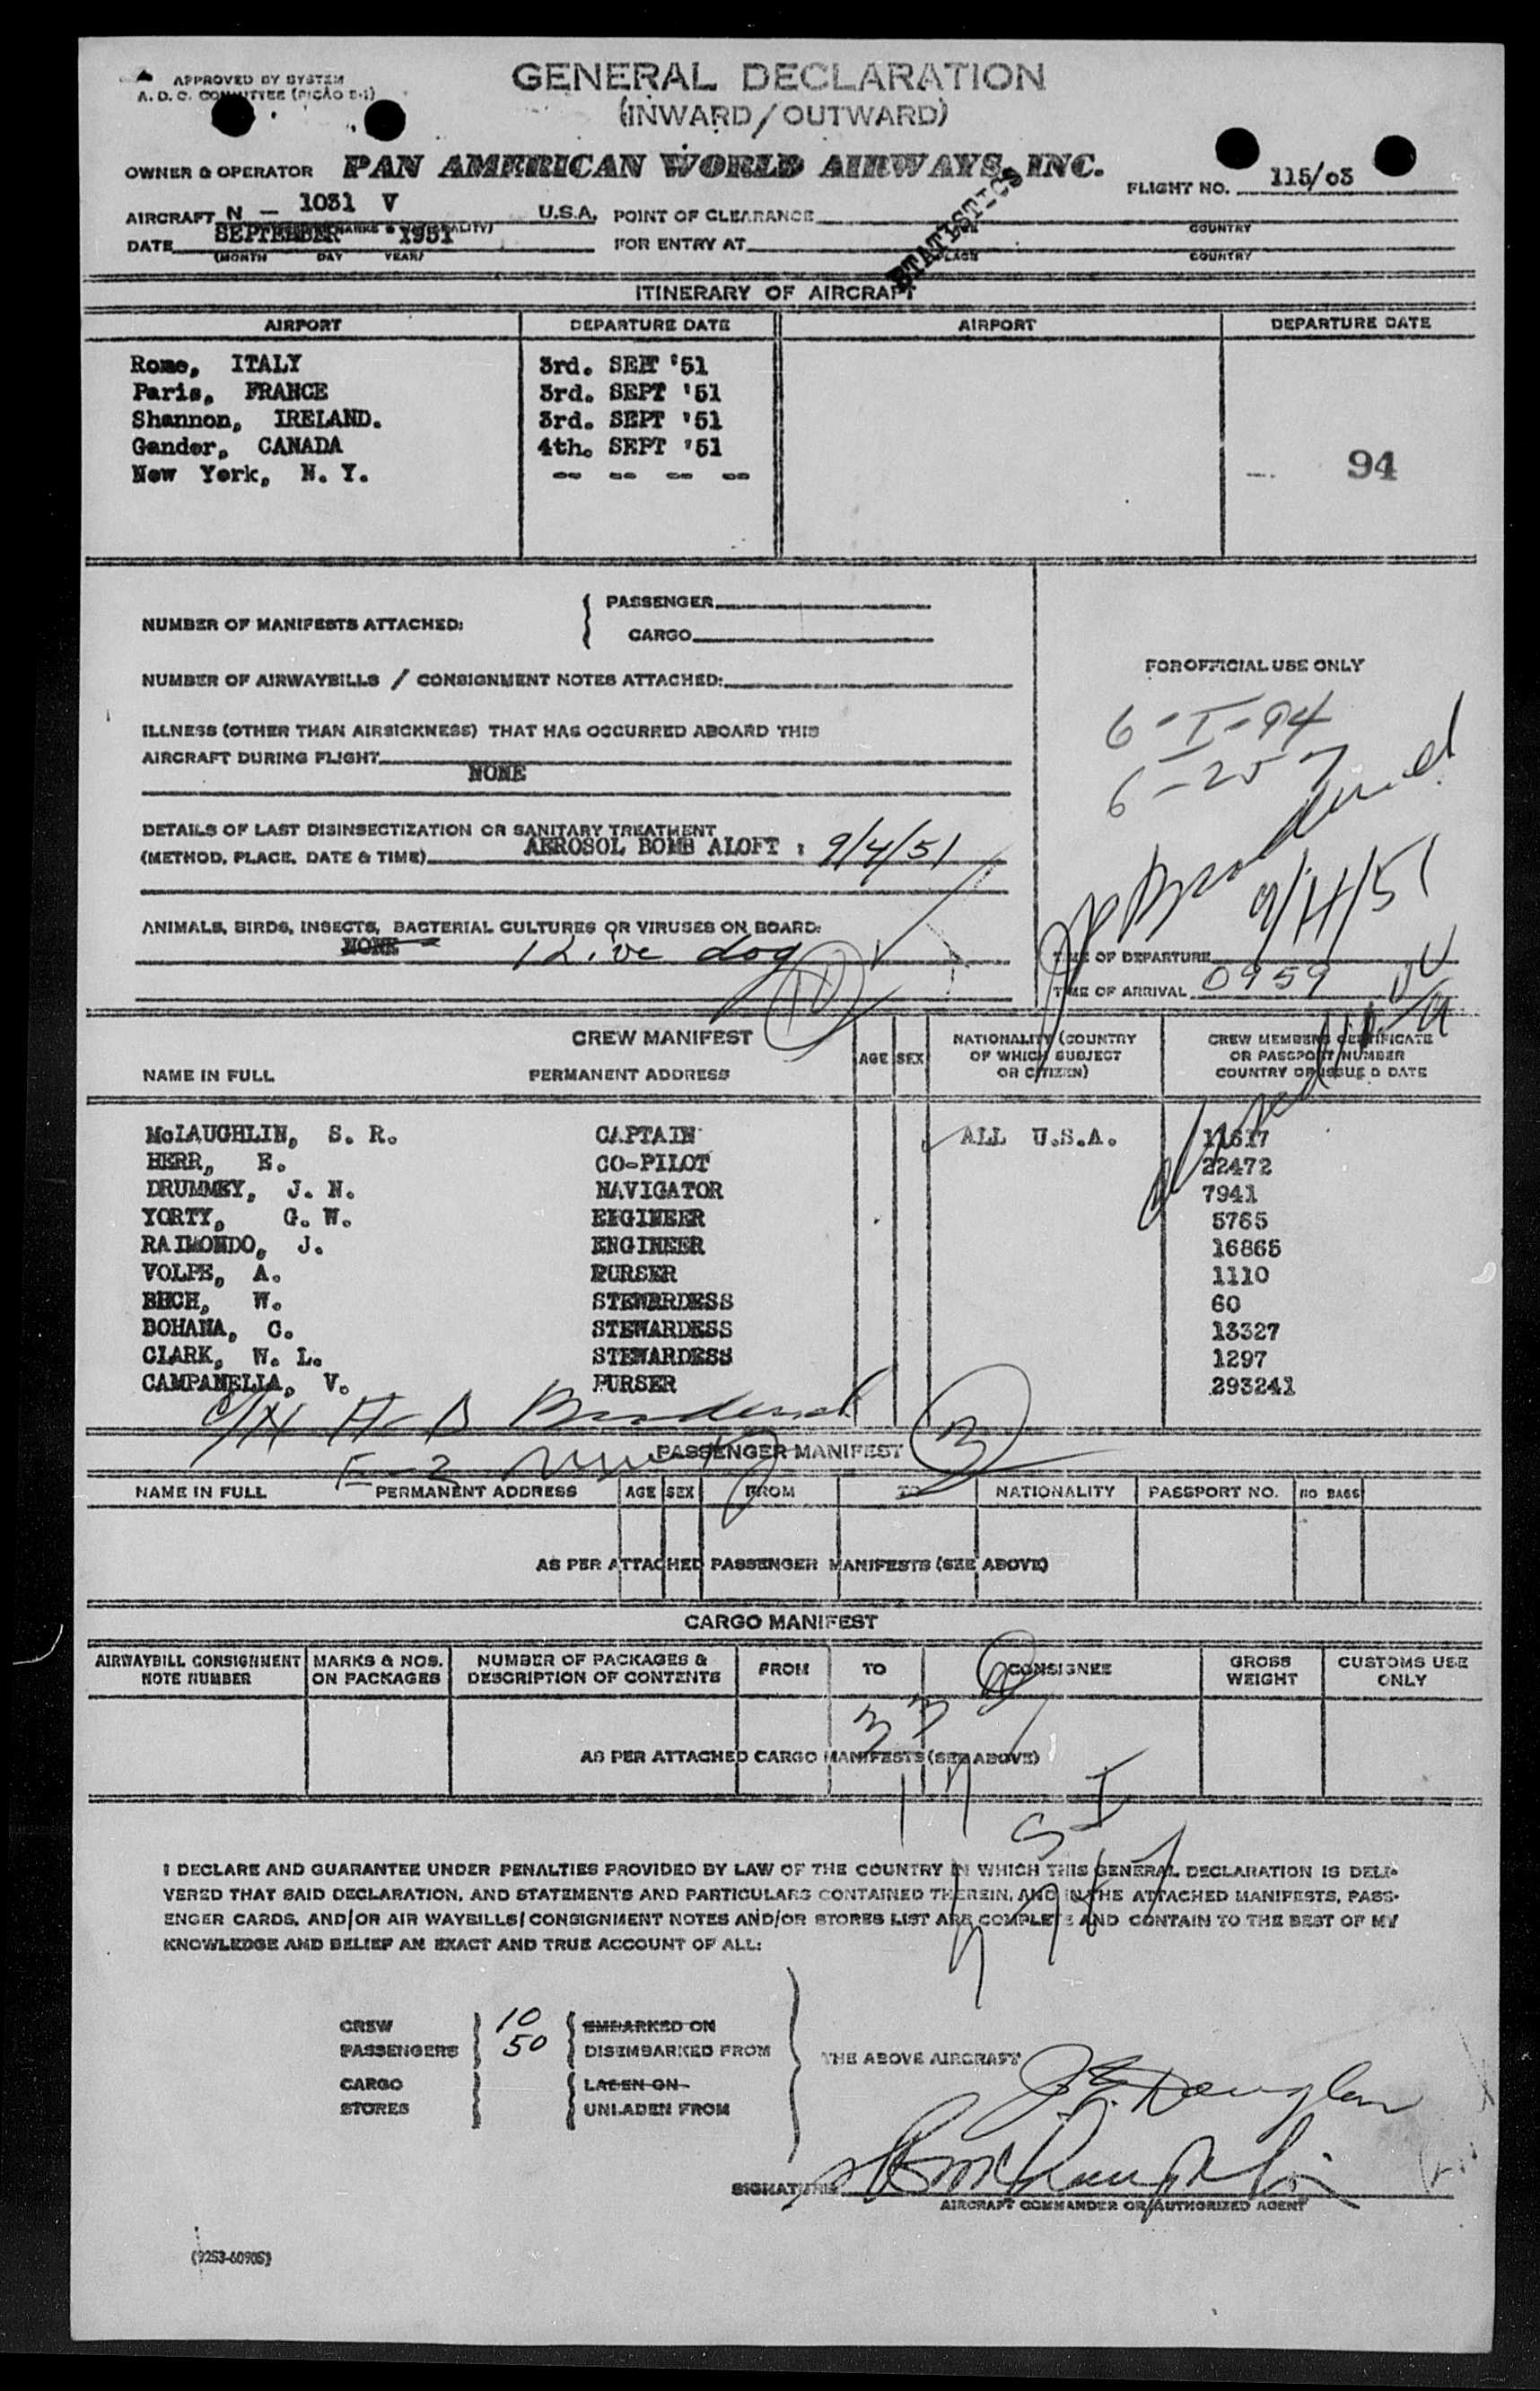 APPROVED BY SYSTEM
A. D. C. COMMITTEE (PICAO 5-1)
GENERAL DECLARATION
(INWARD/OUTWARD)
OWNER & OPERATOR PAN AMERICAN WORLD AIRWAYS, INC.
FLIGHT NO. 115/03
AIRCRAFT N - 1031 V U.S.A. POINT OF CLEARANCE
COUNTRY
STATISTICS
DATE SEPTEMBER 1951 FOR ENTRY AT
(MONTH DAY YEAR) PLACE COUNTRY
ITINERARY OF AIRCRAFT
AIRPORT DEPARTURE DATE AIRPORT DEPARTURE DATE
Rome, ITALY 3rd. SEPT '51
Paris, FRANCE 3rd. SEPT '51
Shannon, IRELAND. 3rd. SEPT '51
Gander, CANADA 4th. SEPT '51
New York, N. Y. -- -- -- --
94
NUMBER OF MANIFESTS ATTACHED: PASSENGER
CARGO
FOR OFFICIAL USE ONLY
NUMBER OF AIRWAYBILLS / CONSIGNMENT NOTES ATTACHED:
6-I-94
6-257
ILLNESS (OTHER THAN AIRSICKNESS) THAT HAS OCCURRED ABOARD THIS
AIRCRAFT DURING FLIGHT
NONE
DETAILS OF LAST DISINSECTIZATION OR SANITARY TREATMENT
(METHOD, PLACE, DATE & TIME) AEROSOL BOMB ALOFT : 9/4/51
9/4/51
ANIMALS, BIRDS, INSECTS, BACTERIAL CULTURES OR VIRUSES ON BOARD:
NONE 1 Live dog
TIME OF DEPARTURE
TIME OF ARRIVAL 0959
CREW MANIFEST
NAME IN FULL PERMANENT ADDRESS AGE SEX NATIONALITY (COUNTRY OF WHICH SUBJECT OR CITIZEN) CREW MEMBERS CERTIFICATE OR PASSPORT NUMBER COUNTRY OF ISSUE & DATE
McLAUGHLIN, S. R. CAPTAIN ALL U.S.A. 11617
HERR, E. CO-PILOT 22472
DRUMMEY, J. N. NAVIGATOR 7941
YORTY, G. W. ENGINEER 5765
RAIMONDO, J. ENGINEER 16865
VOLPE, A. PURSER 1110
BECH, W. STEWARDESS 60
BOHANA, C. STEWARDESS 13327
CLARK, W. L. STEWARDESS 1297
CAMPANELLA, V. PURSER 293241
PASSENGER MANIFEST
NAME IN FULL PERMANENT ADDRESS AGE SEX FROM TO NATIONALITY PASSPORT NO. NO BAGS
AS PER ATTACHED PASSENGER MANIFESTS (SEE ABOVE)
CARGO MANIFEST
AIRWAYBILL CONSIGNMENT NOTE NUMBER MARKS & NOS. ON PACKAGES NUMBER OF PACKAGES & DESCRIPTION OF CONTENTS FROM TO CONSIGNEE GROSS WEIGHT CUSTOMS USE ONLY
33
AS PER ATTACHED CARGO MANIFESTS (SEE ABOVE)
17
I DECLARE AND GUARANTEE UNDER PENALTIES PROVIDED BY LAW OF THE COUNTRY IN WHICH THIS GENERAL DECLARATION IS DELI-
VERED THAT SAID DECLARATION, AND STATEMENTS AND PARTICULARS CONTAINED THEREIN, AND IN THE ATTACHED MANIFESTS, PASS-
ENGER CARDS, AND/OR AIR WAYBILLS/CONSIGNMENT NOTES AND/OR STORES LIST ARE COMPLETE AND CONTAIN TO THE BEST OF MY
KNOWLEDGE AND BELIEF AN EXACT AND TRUE ACCOUNT OF ALL:
CREW 10 EMBARKED ON
PASSENGERS 50 DISEMBARKED FROM
THE ABOVE AIRCRAFT
CARGO LADEN ON
STORES UNLADEN FROM
SIGNATURE S R McLaughlin
AIRCRAFT COMMANDER OR AUTHORIZED AGENT
(9253-60905)